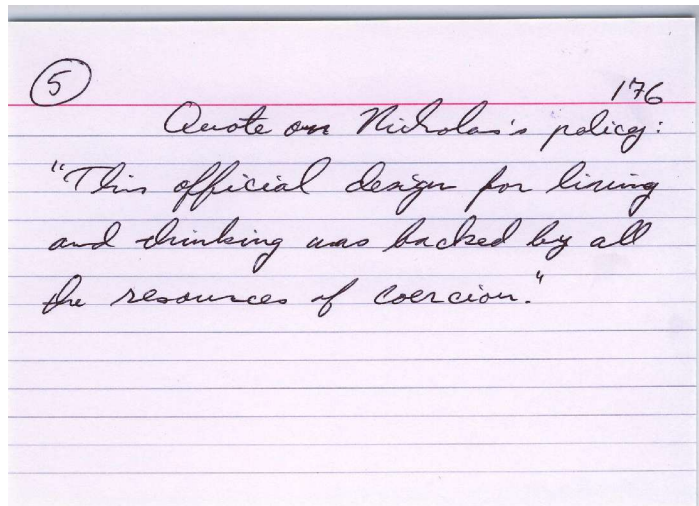 5 176
Quote on Nicholas's policy:
"This official design for living
and thinking was backed by all
the resources of coercion."